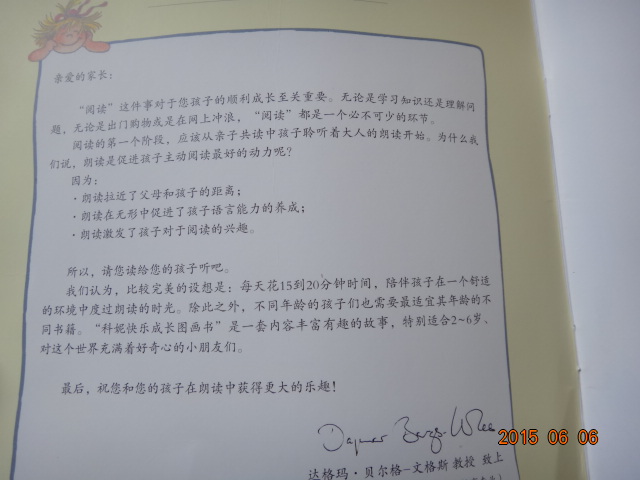 亲爱的家长：
“阅读”这件事对于您孩子的顺利成长至关重要。无论是学习知识还是理解问
题，无论是出门购物或是在网上冲浪，“阅读”都是一个必不可少的环节。
阅读的第一个阶段，应该从亲子共读中孩子聆听着大人的朗读开始。为什么我
们说，朗读是促进孩子主动阅读最好的动力呢？
因为：
·朗读拉近了父母和孩子的距离；
·朗读在无形中促进了孩子语言能力的养成；
·朗读激发了孩子对于阅读的兴趣。
所以，请您读给您的孩子听吧。
我们认为，比较完美的设想是：每天花15到20分钟时间，陪伴孩子在一个舒适
的环境中度过朗读的时光。除此之外，不同年龄的孩子们也需要最适宜其年龄的不
同书籍。“科妮快乐成长图画书”是一套内容丰富有趣的故事，特别适合2~6岁、
对这个世界充满着好奇心的小朋友们。
最后，祝您和您的孩子在朗读中获得更大的乐趣！
达格玛·贝尔格-文格斯 教授 致上
2015 06 06